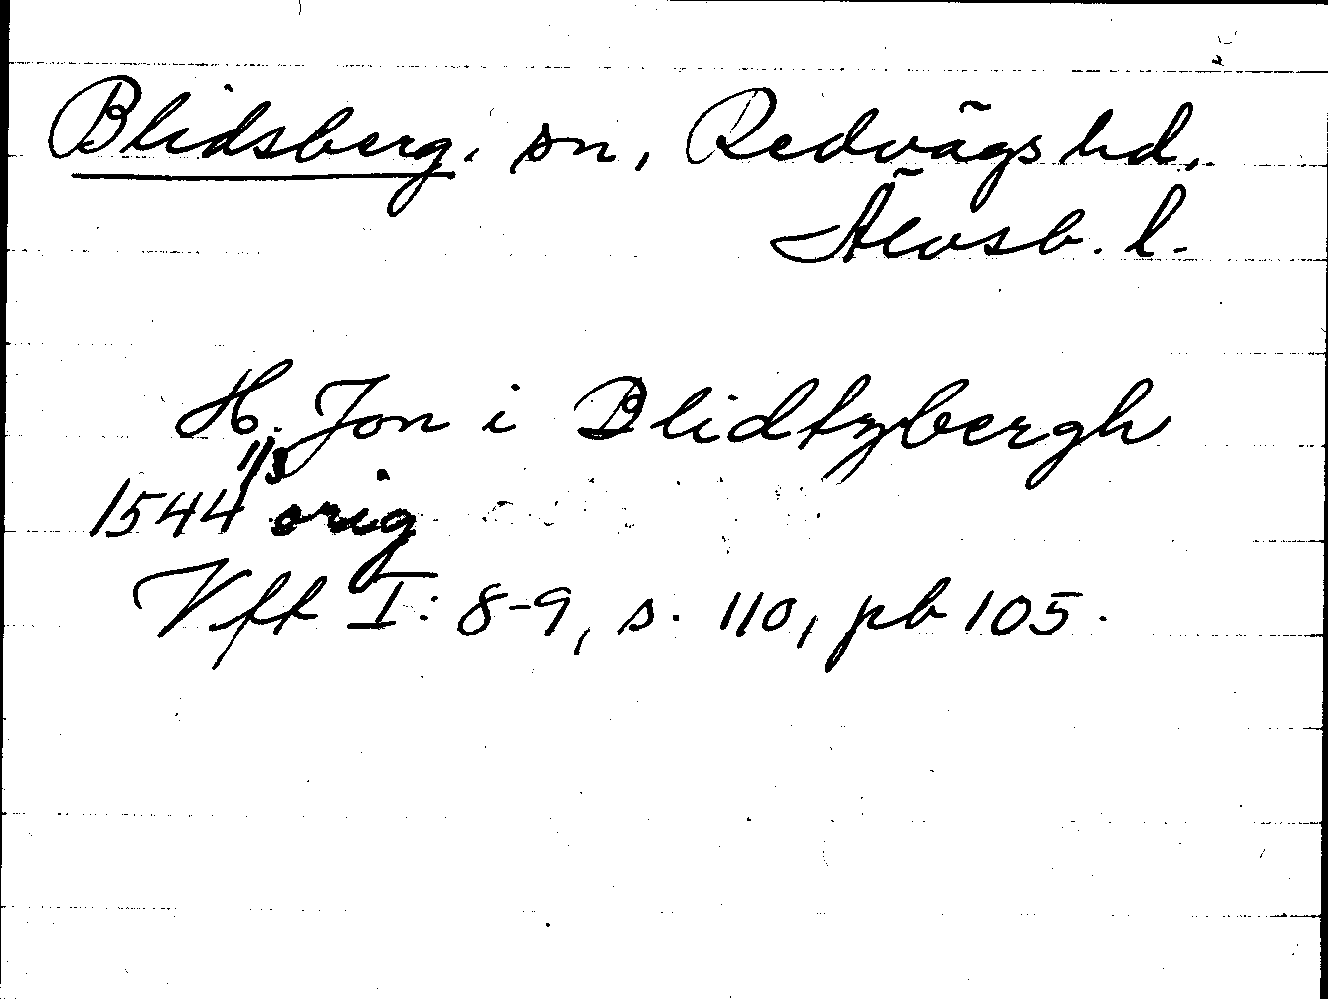 Blidsberg, sn, Redvägs hd,
Älvsb. l.
H. Jon i Blidtzbergh
1544 1/3 orig
Vft I: 8-9, s. 110, pb 105.